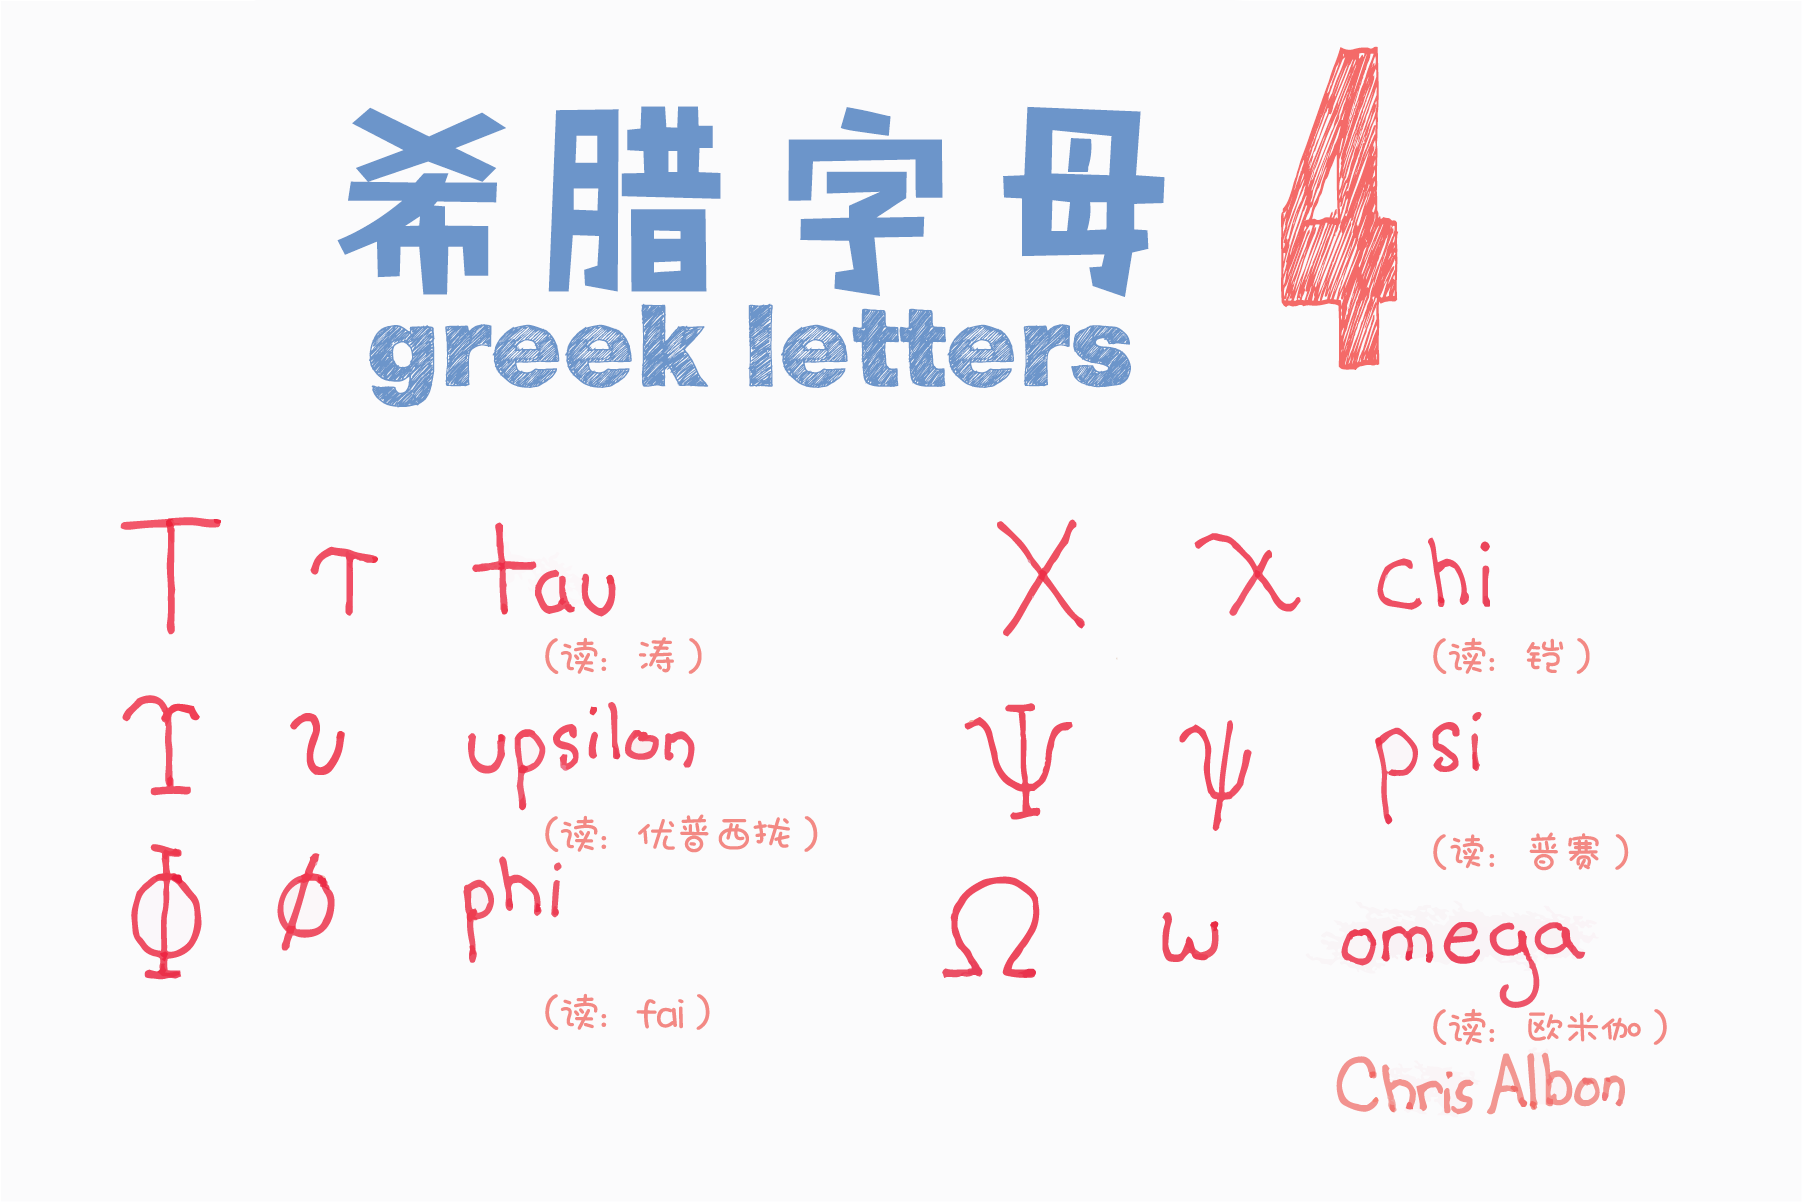 希腊字母 4
greek letters
Τ τ tau
(读: 涛)
Υ υ upsilon
(读: 优普西拢)
Φ ø phi
(读: fai)
Χ χ chi
(读: 铠)
Ψ ψ psi
(读: 普赛)
Ω ω omega
(读: 欧米伽)
Chris Albon